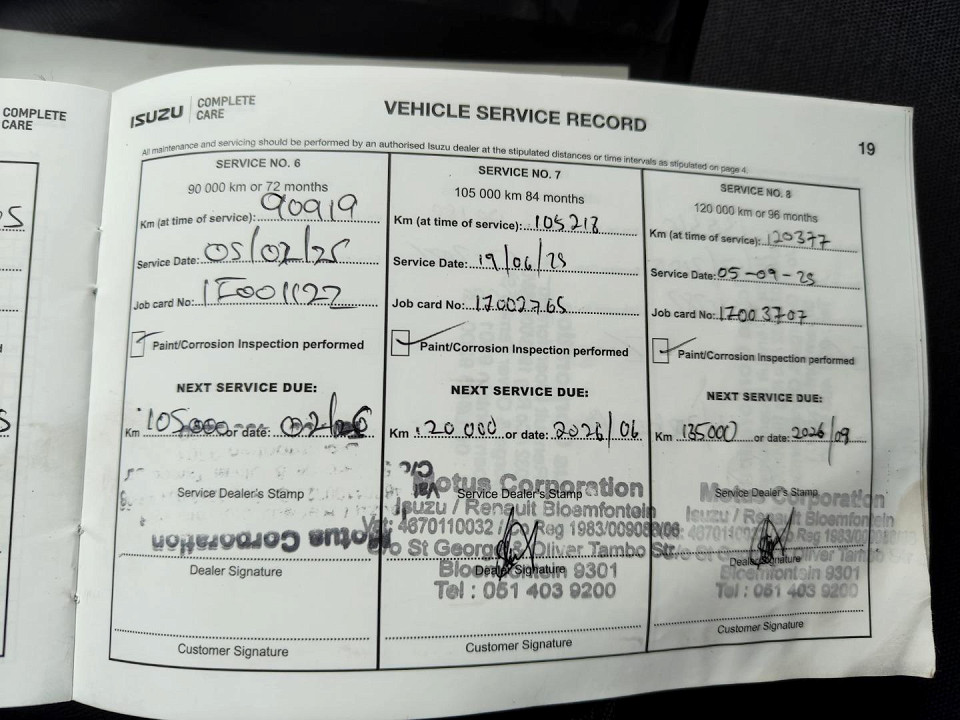 COMPLETE
CARE
ISUZU COMPLETE CARE
VEHICLE SERVICE RECORD
19
All maintenance and servicing should be performed by an authorised Isuzu dealer at the stipulated distances or time intervals as stipulated on page 4.
SERVICE NO. 6
90 000 km or 72 months
Km (at time of service): 90919
Service Date: 05/02/25
Job card No:
Paint/Corrosion Inspection performed
NEXT SERVICE DUE:
Km 105000 or date: 02/26
Service Dealer's Stamp
Motus Corporation
Dealer Signature
Customer Signature
SERVICE NO. 7
105 000 km 84 months
Km (at time of service): 105213
Service Date: 19/06/25
Job card No: 17002765
Paint/Corrosion Inspection performed
NEXT SERVICE DUE:
Km 120 000 or date: 2026/06
Motus Corporation
Service Dealer's Stamp
Isuzu / Renault Bloemfontein
Vat: 4670110032 / Reg 1983/009088/06
St George & Oliver Tambo Str.
Bloemfontein 9301
Dealer Signature
Tel : 051 403 9200
Customer Signature
SERVICE NO. 8
120 000 km or 96 months
Km (at time of service): 120377
Service Date: 05-09-25
Job card No: 17003707
Paint/Corrosion Inspection performed
NEXT SERVICE DUE:
Km 135000 or date: 2026/09
Motus Corporation
Service Dealer's Stamp
Isuzu / Renault Bloemfontein
Oliver Tambo
Dealer Signature
Bloemfontein 9301
Tel : 051 403 9200
Customer Signature